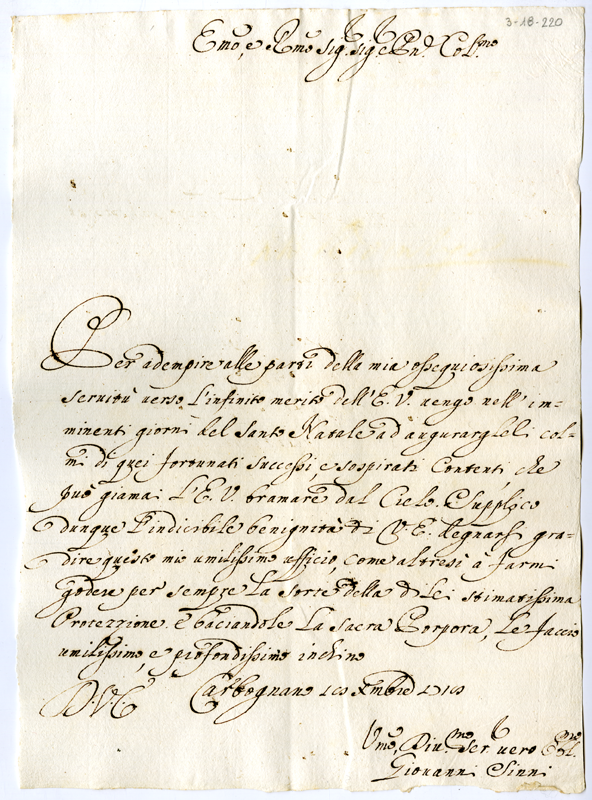 3-18-220
Emo, e Rmo Sig. Sig. e Pnē Colmo
Per adempire alle parti della mia ossequiosissima
servitù verso l'infinito merito dell'E. V. vengo nell'im=
minenti giorni del Santo Natale ad augurargloli col=
mi di quei fortunati successi, e sospirati contenti, che
può giamai L'E. V. bramare dal Cielo. Supplico
dunque l'indicibile benignità di V. E. degnarsi gra=
dire questo mio umilissimo ufficio, come altresì à farmi
godere per sempre la sorte della di lei stimatissima
Protezzione. E baciandole la Sacra Porpora, le faccio
umilissimo, e profondissimo inchino
D. V. E. Carbognano Xmbre
Umo, Divmo Ser. vero
Giovanni Sinni